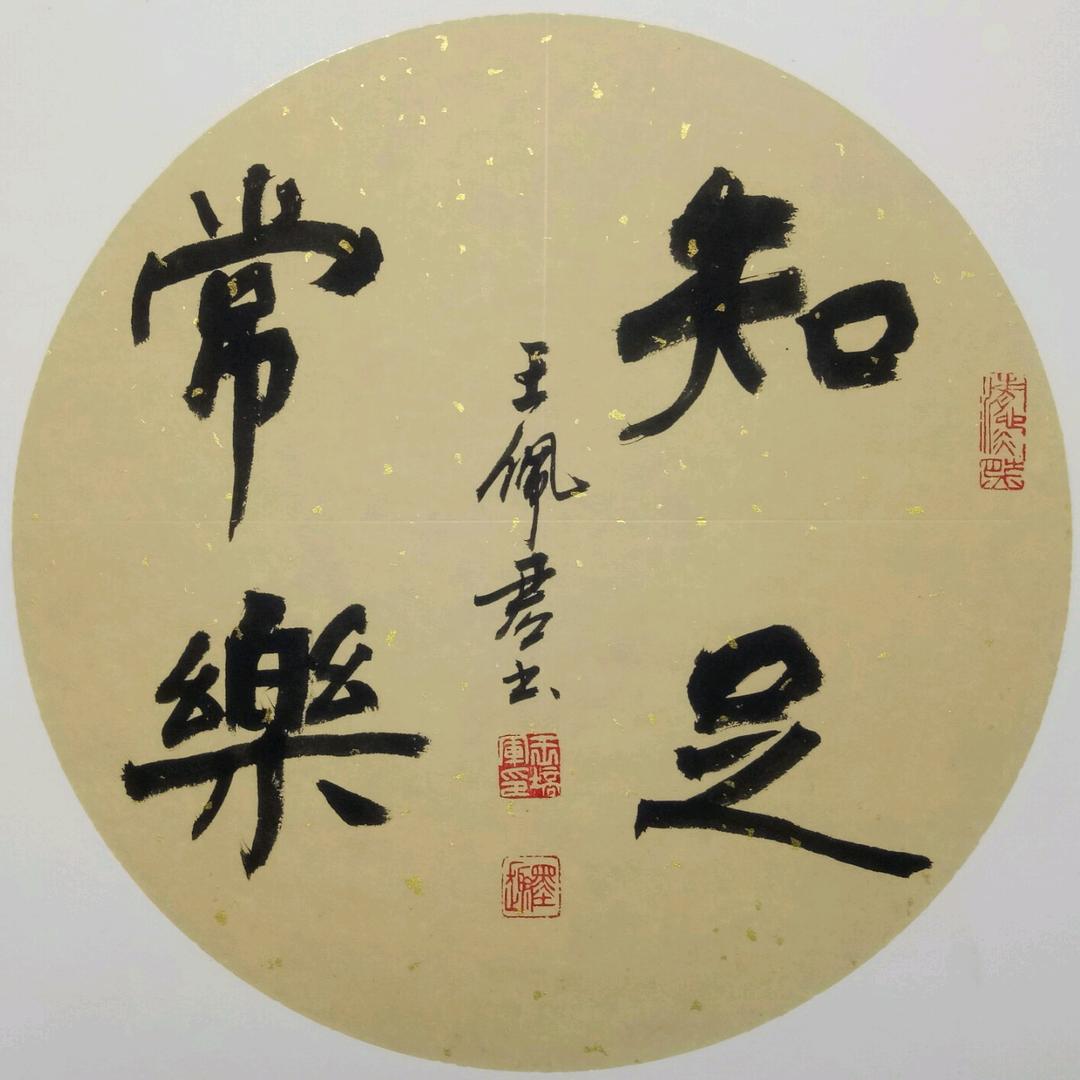 知足
常樂
王佩君书